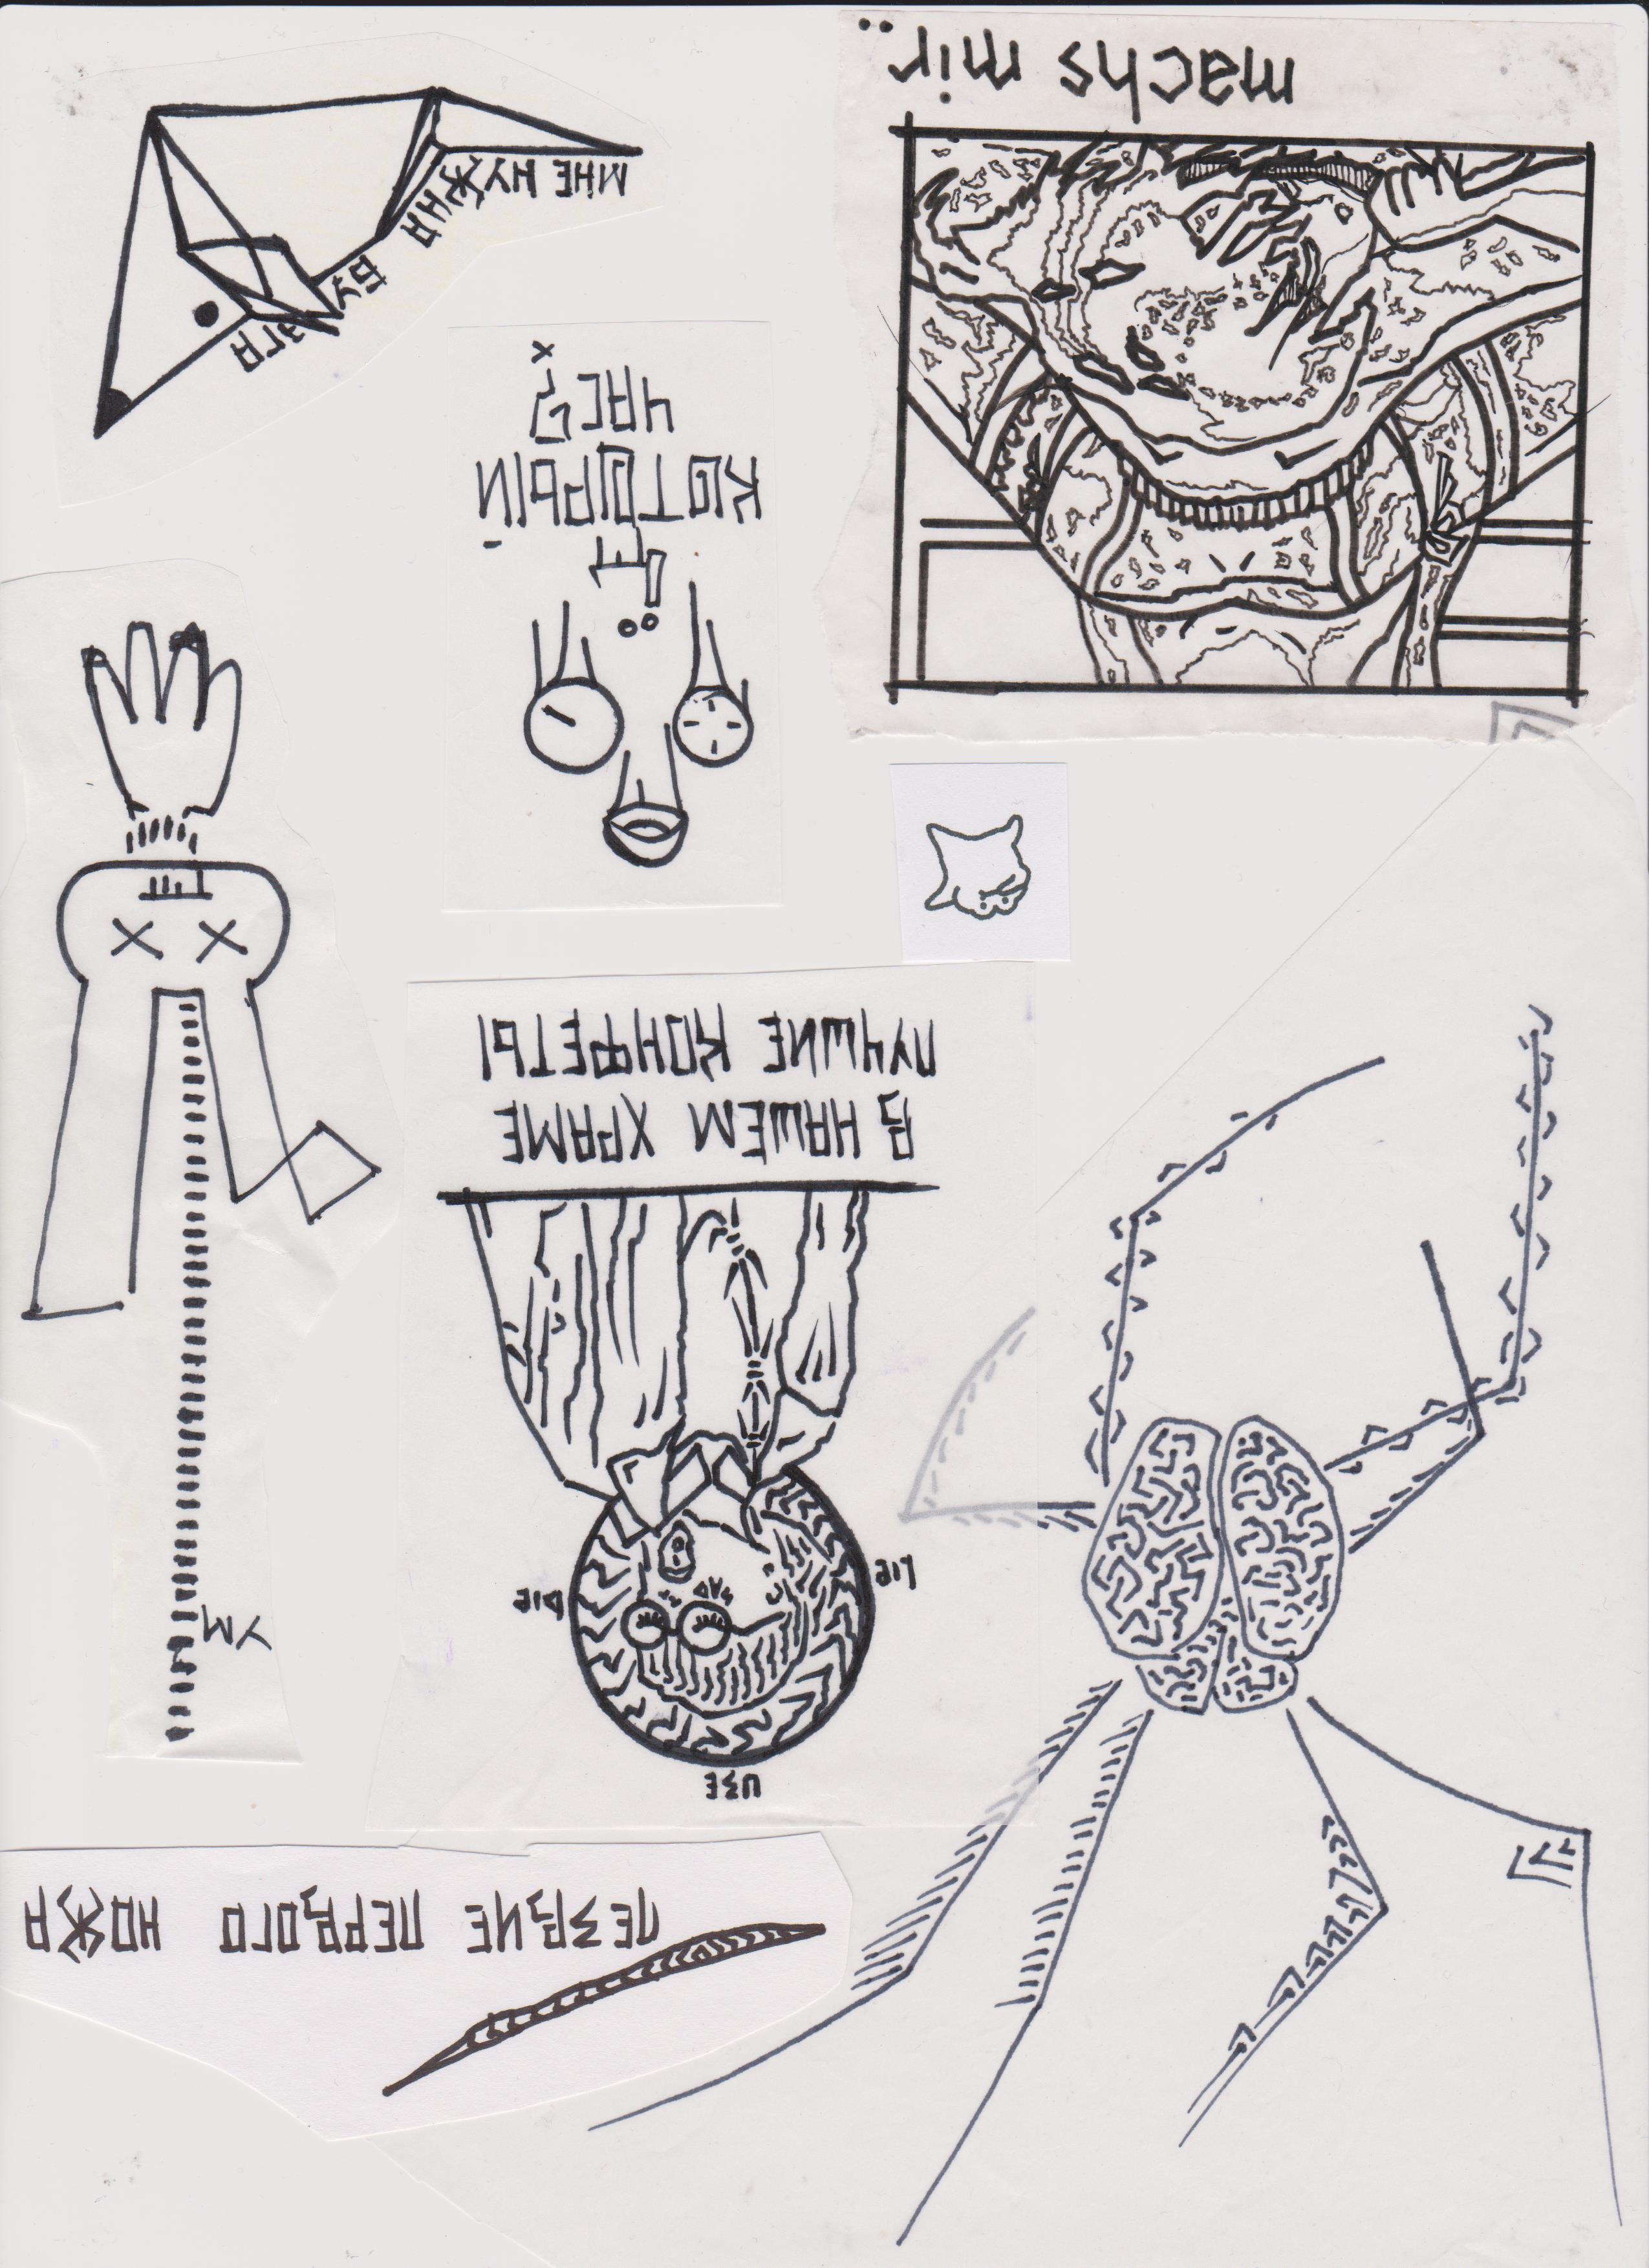 ЛЕЗВИЕ ПЕРВОГО НОЖА
USE
LIE
DIE
SAD
УМ
В НАШЕМ ХРАМЕ
ЛУЧШИЕ КОНФЕТЫ
КОТОРЫЙ
ЧАС?
МНЕ НУЖНА БУЗГА
machs mir..